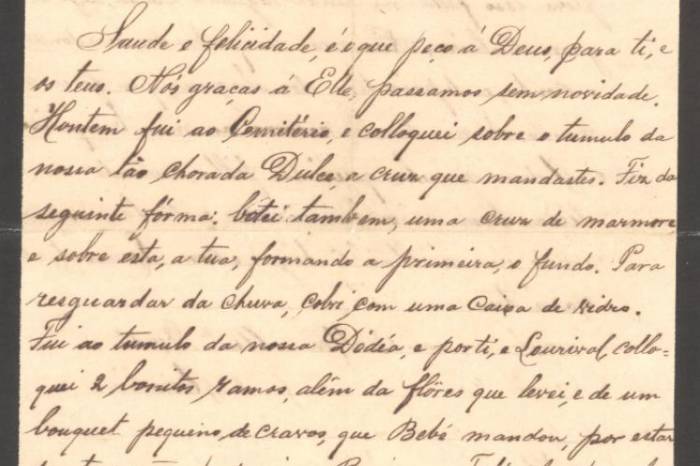 Saude e felicidade, é o que peço á Deus, para ti, e
os teus. Nós graças á Elle, passamos sem novidade.
Hontem fui ao Cemitério, e colloquei sobre o tumulo da
nossa tão chorada Dulce, a cruz que mandastes. Fiz da
seguinte fórma: botei tambem, uma cruz de marmore
e sobre esta, a tua, formando a primeira, o fundo. Para
resguardar da chuva, cobri com uma caixa de vidro.
Fui ao tumulo da nossa Dódéa, e por ti, e Lourival, collo=
quei 2 bonitos ramos, além da flôres que levei, e de um
bouquet pequeno, de cravos, que Bebé mandou, por estar